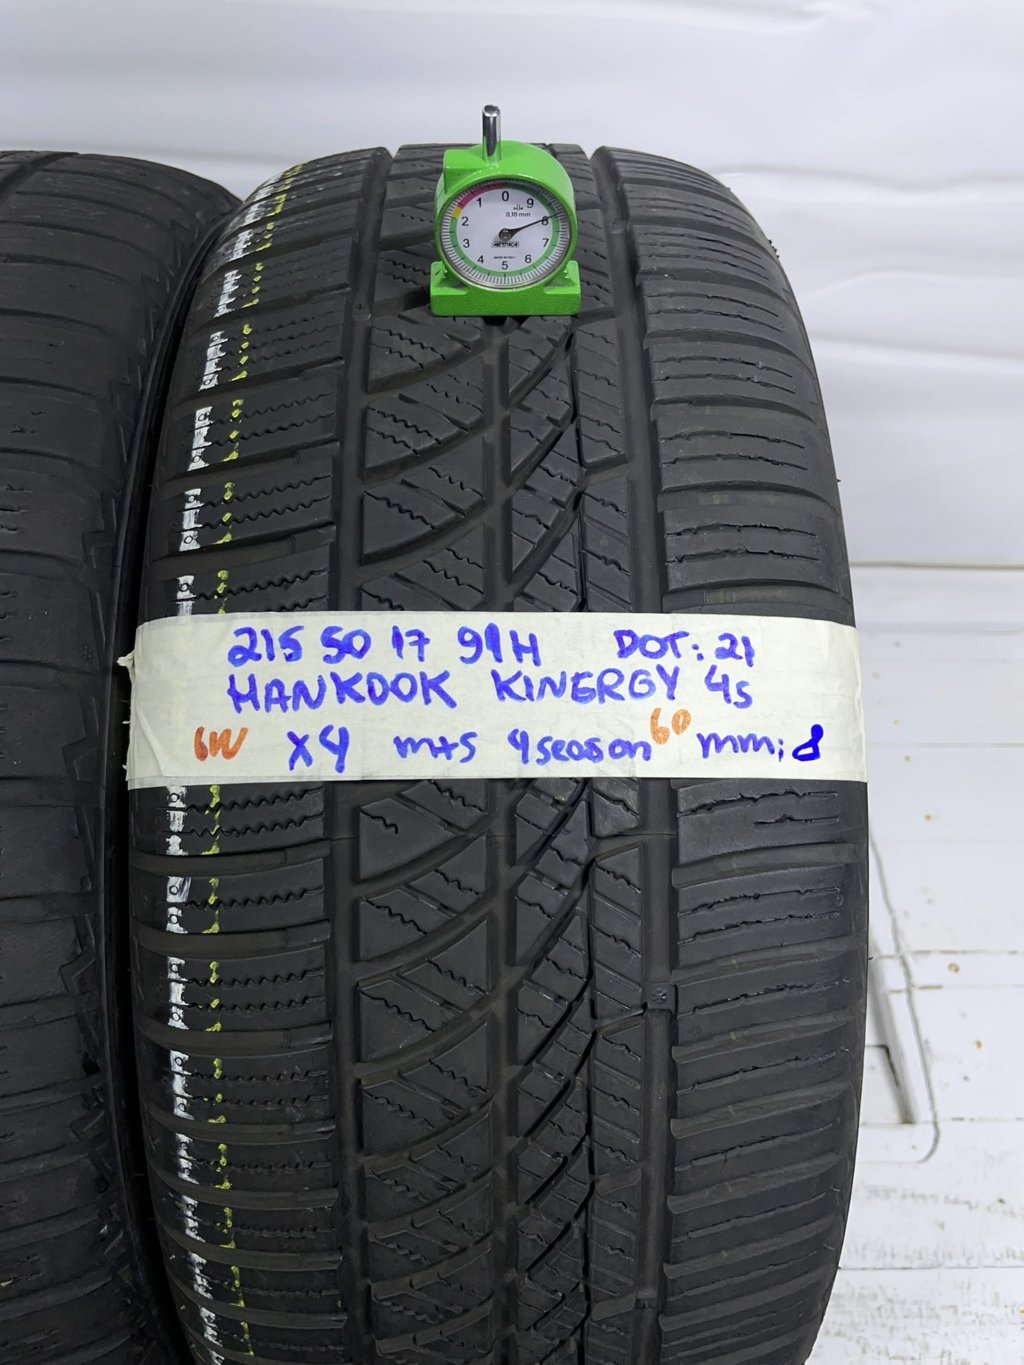 1 0 9
0,10 mm
2 8
3 7
METRICA
4 5 6
215 50 17 91H DOT: 21
HANKOOK KINERGY 4S
6W X4 m+s 4season 60 mm: 8